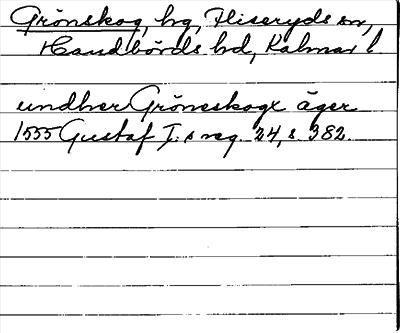 Grönskog, hg, Fliseryds sn,
Handbörds hd, Kalmar l.
undher Gröneskogx äger
1555 Gustaf I:s reg. 24, s. 382.